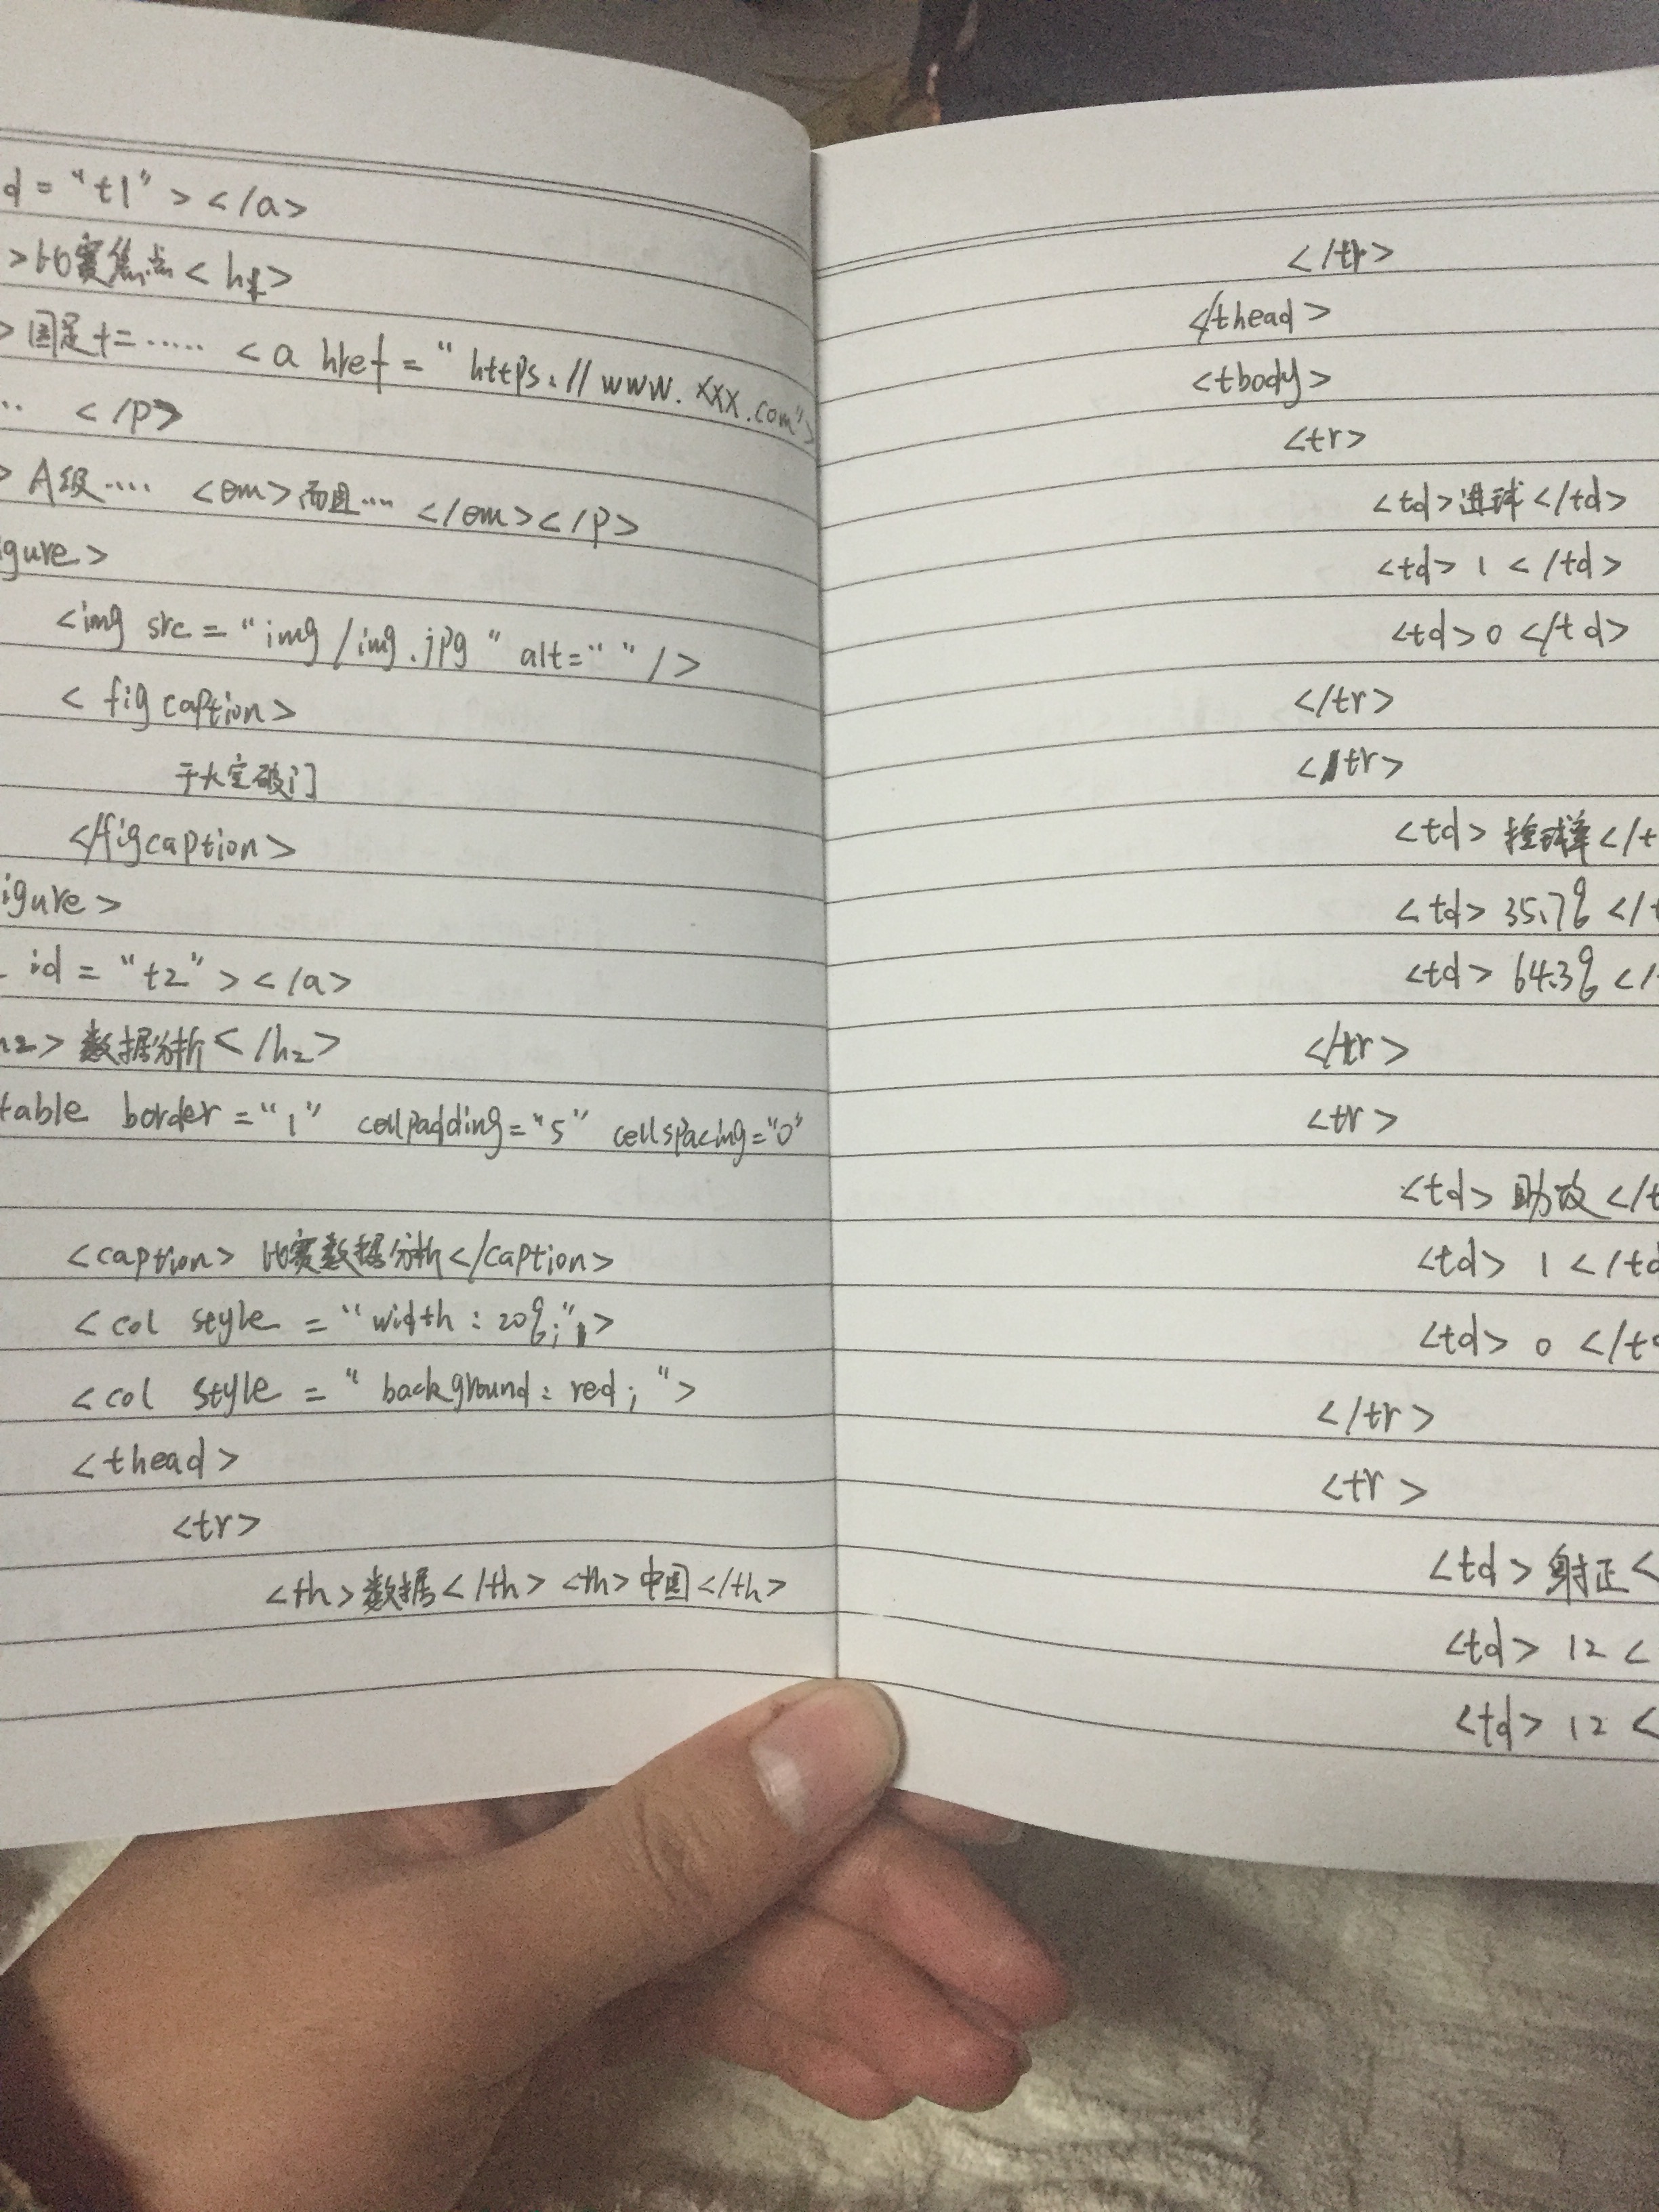 d = "t1" > </a>
> 比赛焦点 < h1>
> 国足十二 ..... <a href = " https://www.xxx.com">
.. </p>
> A级 .... <em>而且... </em></p>
igure>
<img src = "img/img.jpg " alt=" " />
< figcaption>
于大宝破门
</figcaption>
igure>
id = "t2" > </a>
h2> 数据分析 </h2>
table border ="1" cellpadding="5" cellspacing="0"
<caption> 比赛数据分析</caption>
<col style = "width : 20%;">
<col style = " background: red; ">
<thead>
<tr>
<th>数据</th> <th>中国</th>
</tr>
</thead>
<tbody>
<tr>
<td>进球</td>
<td> 1 </td>
<td>0 </td>
</tr>
<tr>
<td> 控球率</t
<td> 35.7% </t
<td> 64.3% </
</tr>
<tr>
<td> 助攻 </t
<td> 1 </td
<td> 0 </t
</tr>
<tr>
<td> 射正<
<td> 12 <
<td> 12 <